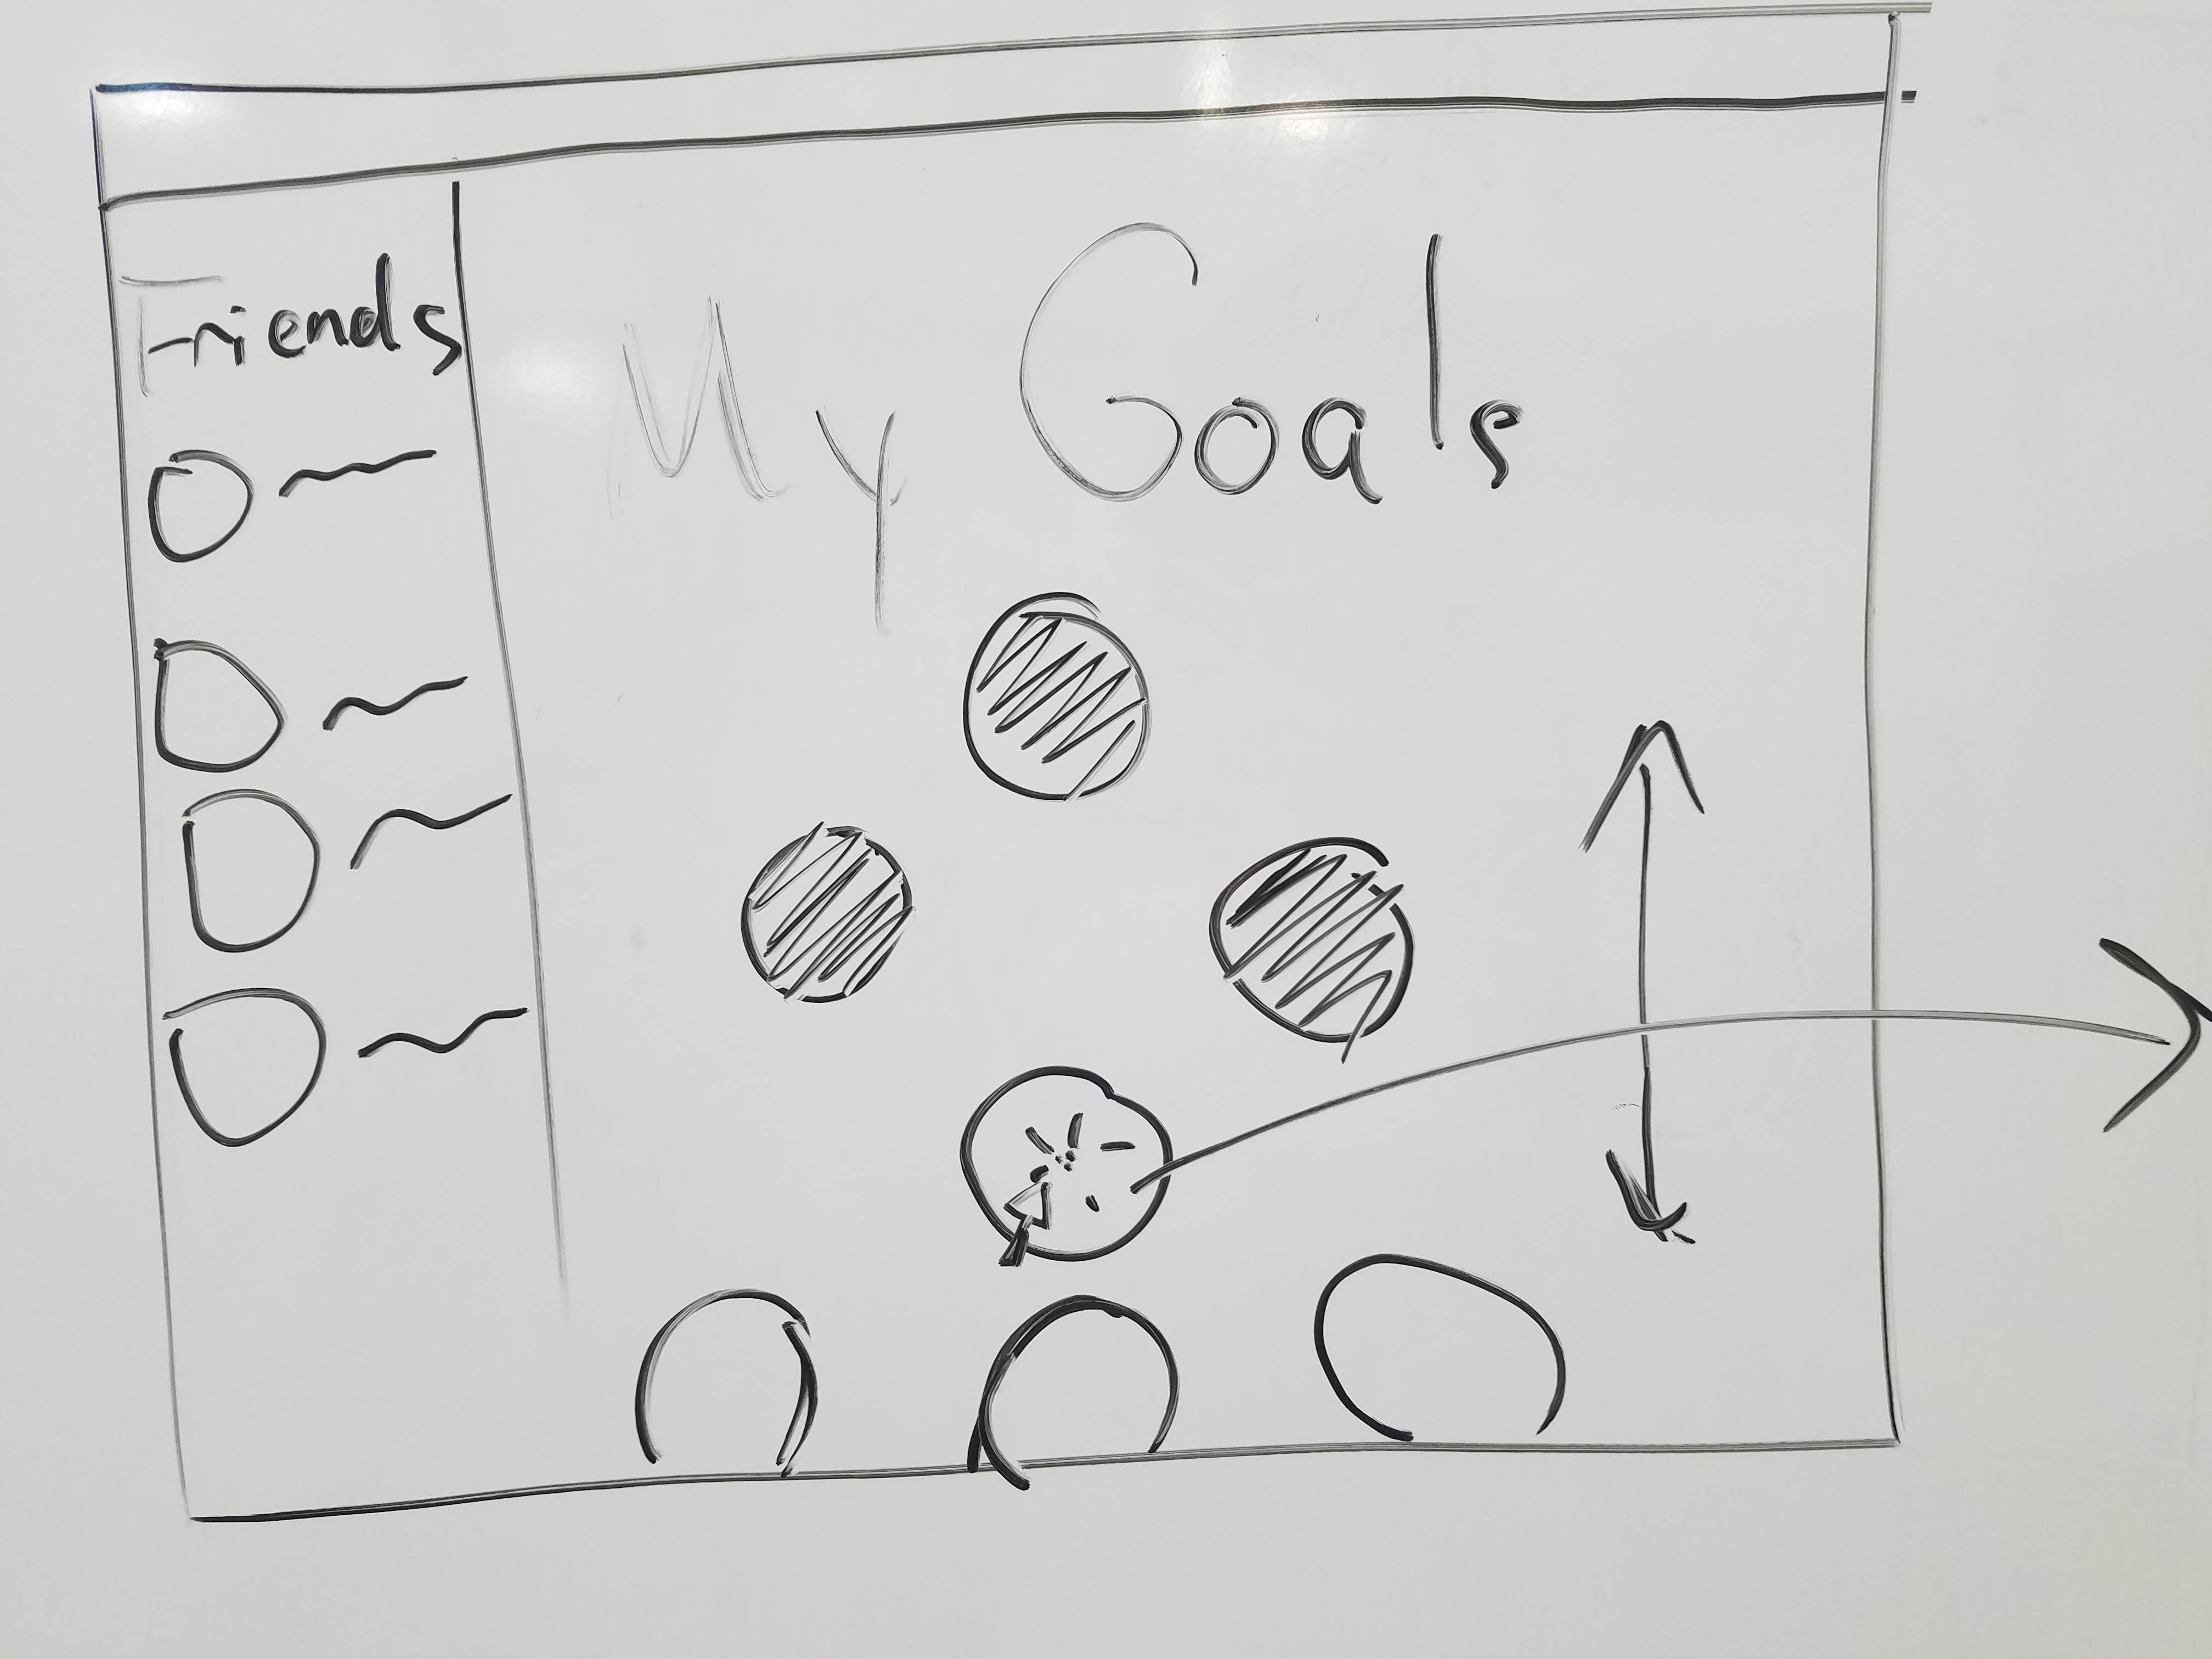 Friends
My Goals